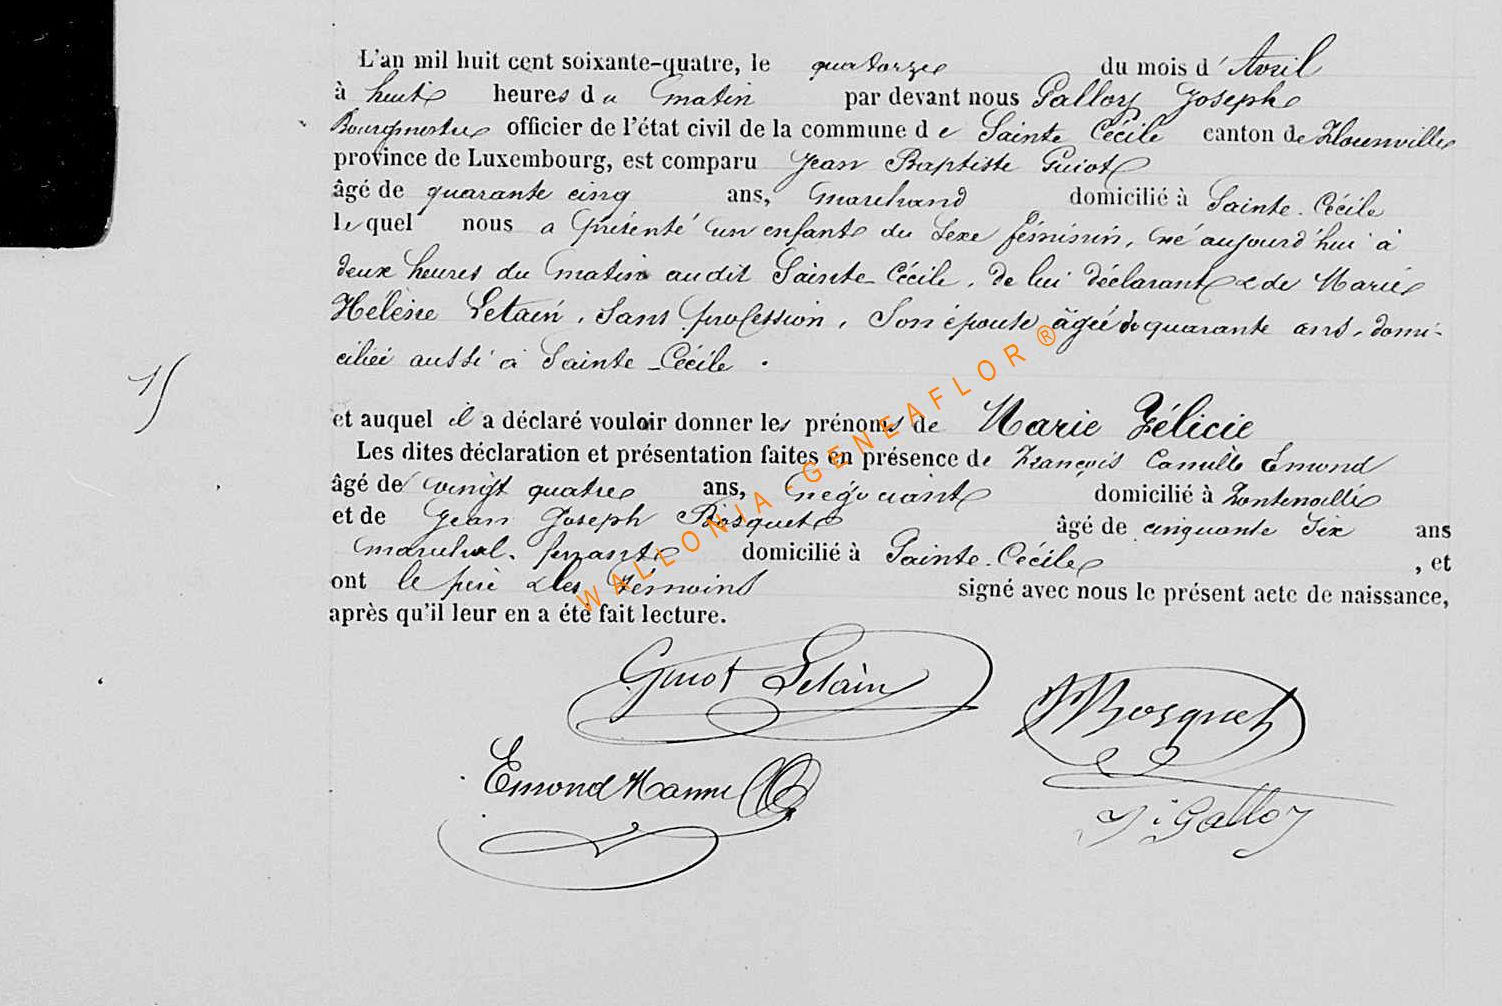 L'an mil huit cent soixante-quatre, le quatorze du mois d'Avril
à huit heures du matin par devant nous Galloy Joseph
Bourgmestre officier de l'état civil de la commune de Sainte Cécile canton de Florenville
province de Luxembourg, est comparu Jean Baptiste Guiot
âgé de quarante cinq ans, marchand domicilié à Sainte-Cécile
lequel nous a présenté un enfant du sexe féminin, né aujourd'hui à
deux heures du matin audit Sainte-Cécile, de lui déclarant & de Marie
Helène Letain, sans profession, son épouse âgée de quarante ans, domi-
ciliée aussi à Sainte-Cécile.
et auquel il a déclaré vouloir donner les prénoms de Marie Félicie
Les dites déclaration et présentation faites en présence de François Camille Emond
âgé de vingt quatre ans, négociant domicilié à Fontenoille
et de Jean Joseph Bosquet âgé de cinquante six ans
marechal-ferrant domicilié à Sainte-Cécile, et
ont le père & les témoins signé avec nous le présent acte de naissance,
après qu'il leur en a été fait lecture.
Guiot Letain
Bosquet
Emond
Galloy
WALLONIA-GENEAFLOR ®